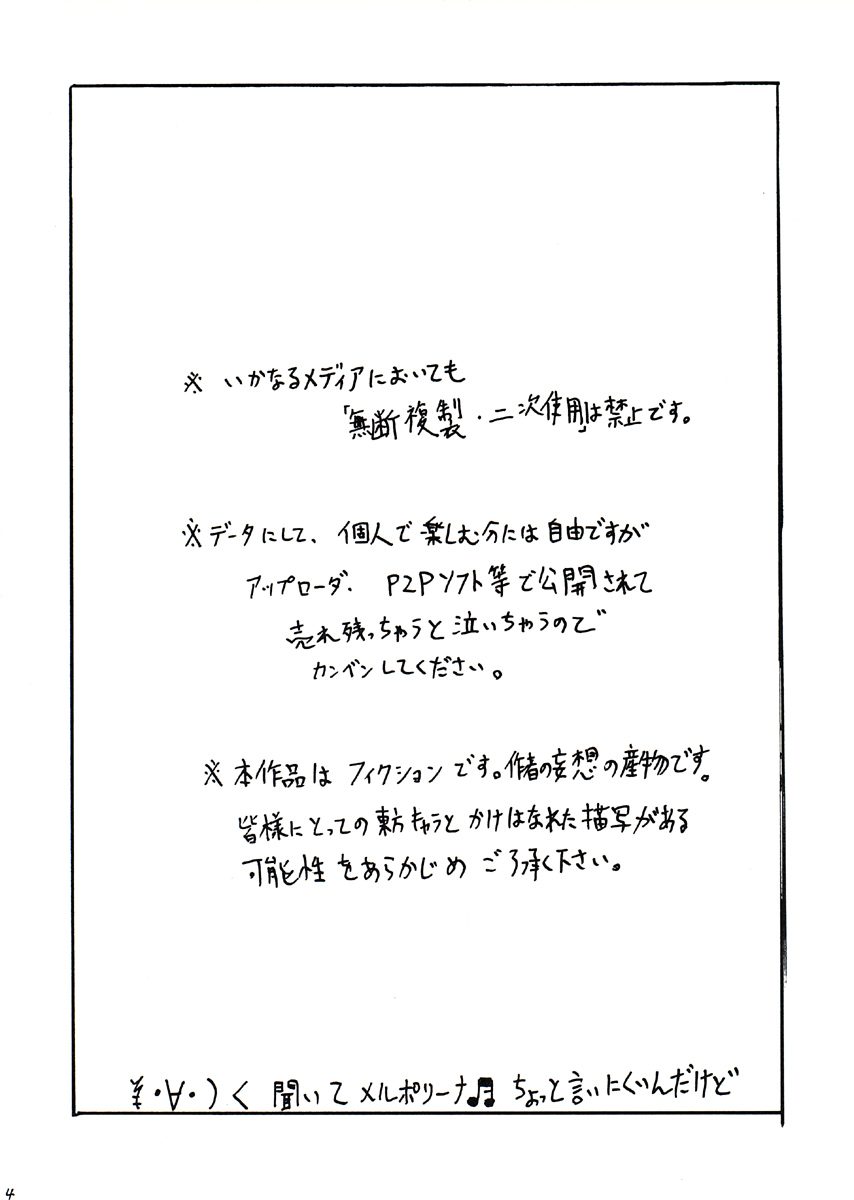 ※ いかなるメディアにおいても
「無断複製・二次使用」は禁止です。
※データにして、個人で楽しむ分には自由ですが
アップローダ、P2Pソフト等で公開されて
売れ残っちゃうと泣いちゃうので
カンベンしてください。
※本作品は フィクションです。作者の妄想の産物です。
皆様にとっての東方キャラと かけはなれた描写がある
可能性をあらかじめ ご了承く下さい。
¥・∀・)く 聞いて メルポリーナ♫ ちょっと言いにくいんだけど
4